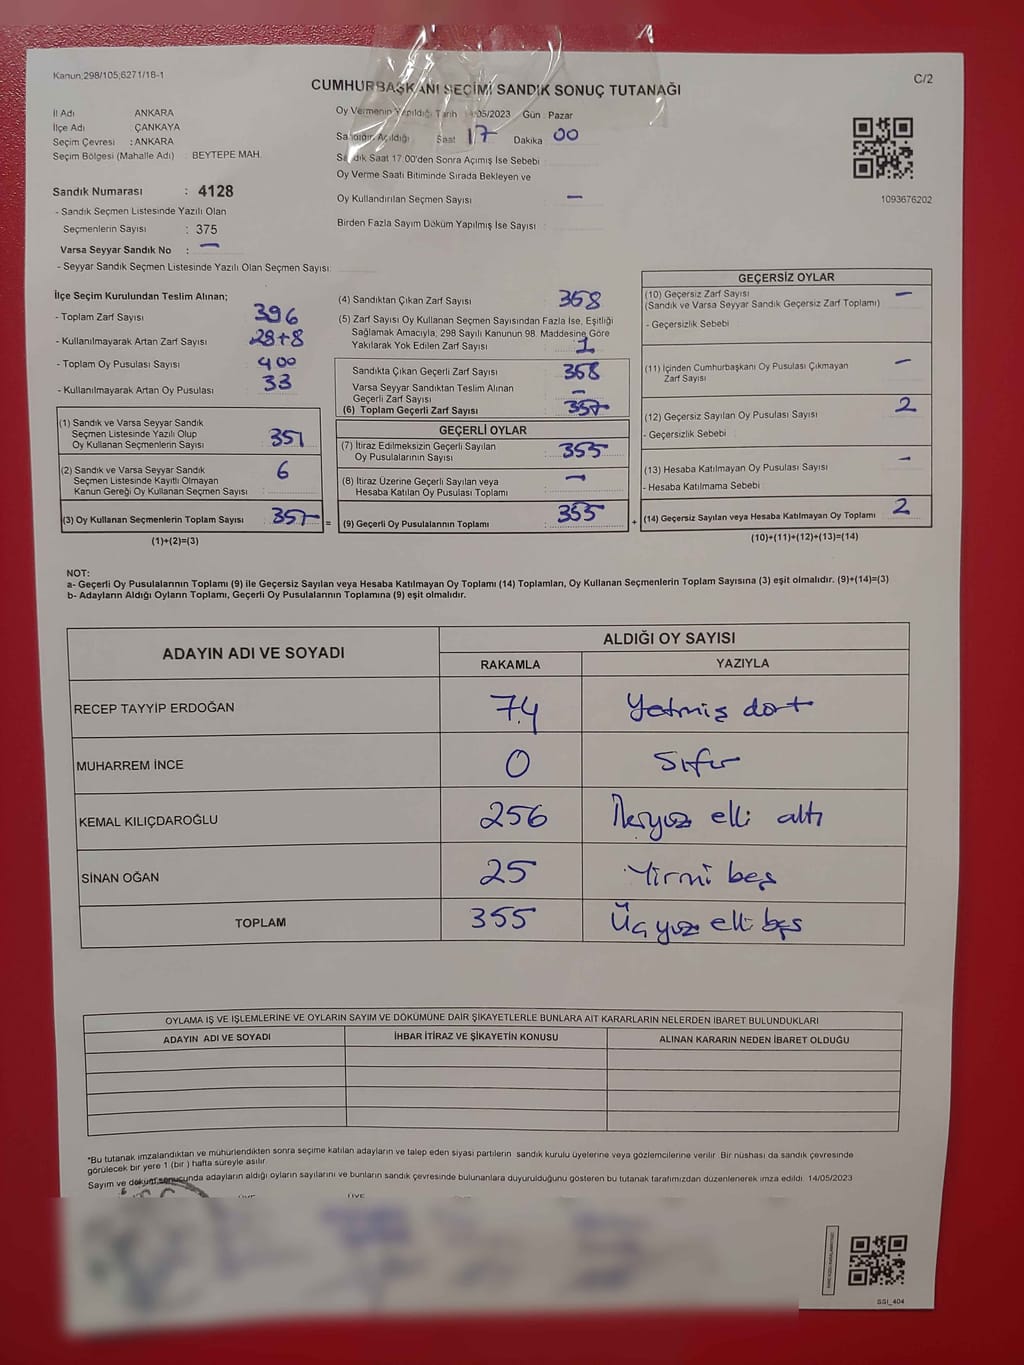 Kanun:298/105;6271/18-1
C/2
CUMHURBAŞKANI SEÇİMİ SANDIK SONUÇ TUTANAĞI
İl Adı ANKARA
İlçe Adı ÇANKAYA
Seçim Çevresi : ANKARA
Seçim Bölgesi (Mahalle Adı) BEYTEPE MAH.
Sandık Numarası : 4128
- Sandık Seçmen Listesinde Yazılı Olan
Seçmenlerin Sayısı : 375
Varsa Seyyar Sandık No : —
- Seyyar Sandık Seçmen Listesinde Yazılı Olan Seçmen Sayısı:
Oy Vermenin Yapıldığı Tarih /05/2023 Gün : Pazar
Sandığın Açıldığı Saat 17 Dakika 00
Sandık Saat 17:00'den Sonra Açımış İse Sebebi
Oy Verme Saati Bitiminde Sırada Bekleyen ve
Oy Kullandırılan Seçmen Sayısı —
Birden Fazla Sayım Döküm Yapılmış İse Sayısı
1093676202
İlçe Seçim Kurulundan Teslim Alınan;
- Toplam Zarf Sayısı 396
- Kullanılmayarak Artan Zarf Sayısı 28+8
- Toplam Oy Pusulası Sayısı 400
- Kullanılmayarak Artan Oy Pusulası 33
(1) Sandık ve Varsa Seyyar Sandık
Seçmen Listesinde Yazılı Olup
Oy Kullanan Seçmenlerin Sayısı 351
(2) Sandık ve Varsa Seyyar Sandık
Seçmen Listesinde Kayıtlı Olmayan
Kanun Gereği Oy Kullanan Seçmen Sayısı 6
(3) Oy Kullanan Seçmenlerin Toplam Sayısı 357 =
(1)+(2)=(3)
(4) Sandıktan Çıkan Zarf Sayısı 358
(5) Zarf Sayısı Oy Kullanan Seçmen Sayısından Fazla İse, Eşitliği
Sağlamak Amacıyla, 298 Sayılı Kanunun 98. Maddesine Göre
Yakılarak Yok Edilen Zarf Sayısı 1
Sandıkta Çıkan Geçerli Zarf Sayısı 358
Varsa Seyyar Sandıktan Teslim Alınan
Geçerli Zarf Sayısı —
(6) Toplam Geçerli Zarf Sayısı 357
GEÇERLİ OYLAR
(7) İtiraz Edilmeksizin Geçerli Sayılan
Oy Pusulalarının Sayısı 355
(8) İtiraz Üzerine Geçerli Sayılan veya
Hesaba Katılan Oy Pusulası Toplamı —
(9) Geçerli Oy Pusulalarının Toplamı 355 +
GEÇERSİZ OYLAR
(10) Geçersiz Zarf Sayısı —
(Sandık ve Varsa Seyyar Sandık Geçersiz Zarf Toplamı)
- Geçersizlik Sebebi
(11) İçinden Cumhurbaşkanı Oy Pusulası Çıkmayan
Zarf Sayısı —
(12) Geçersiz Sayılan Oy Pusulası Sayısı 2
- Geçersizlik Sebebi
(13) Hesaba Katılmayan Oy Pusulası Sayısı —
- Hesaba Katılmama Sebebi
(14) Geçersiz Sayılan veya Hesaba Katılmayan Oy Toplamı 2
(10)+(11)+(12)+(13)=(14)
NOT:
a- Geçerli Oy Pusulalarının Toplamı (9) ile Geçersiz Sayılan veya Hesaba Katılmayan Oy Toplamı (14) Toplamları, Oy Kullanan Seçmenlerin Toplam Sayısına (3) eşit olmalıdır. (9)+(14)=(3)
b- Adayların Aldığı Oyların Toplamı, Geçerli Oy Pusulalarının Toplamına (9) eşit olmalıdır.
ADAYIN ADI VE SOYADI
ALDIĞI OY SAYISI
RAKAMLA YAZIYLA
RECEP TAYYİP ERDOĞAN 74 Yetmiş dört
MUHARREM İNCE 0 Sıfır
KEMAL KILIÇDAROĞLU 256 İkiyüz elli altı
SİNAN OĞAN 25 Yirmi beş
TOPLAM 355 Üçyüz elli beş
OYLAMA İŞ VE İŞLEMLERİNE VE OYLARIN SAYIM VE DÖKÜMÜNE DAİR ŞİKAYETLERLE BUNLARA AİT KARARLARIN NELERDEN İBARET BULUNDUKLARI
ADAYIN ADI VE SOYADI İHBAR İTİRAZ VE ŞİKAYETİN KONUSU ALINAN KARARIN NEDEN İBARET OLDUĞU
*Bu tutanak imzalandıktan ve mühürlendikten sonra seçime katılan adayların ve talep eden siyasi partilerin sandık kurulu üyelerine veya gözlemcilerine verilir. Bir nüshası da sandık çevresinde
görülecek bir yere 1 (bir) hafta süreyle asılır.
Sayım ve döküm sonucunda adayların aldığı oyların sayılarını ve bunların sandık çevresinde bulunanlara duyurulduğunu gösteren bu tutanak tarafımızdan düzenlenerek imza edildi. 14/05/2023
SSI_404